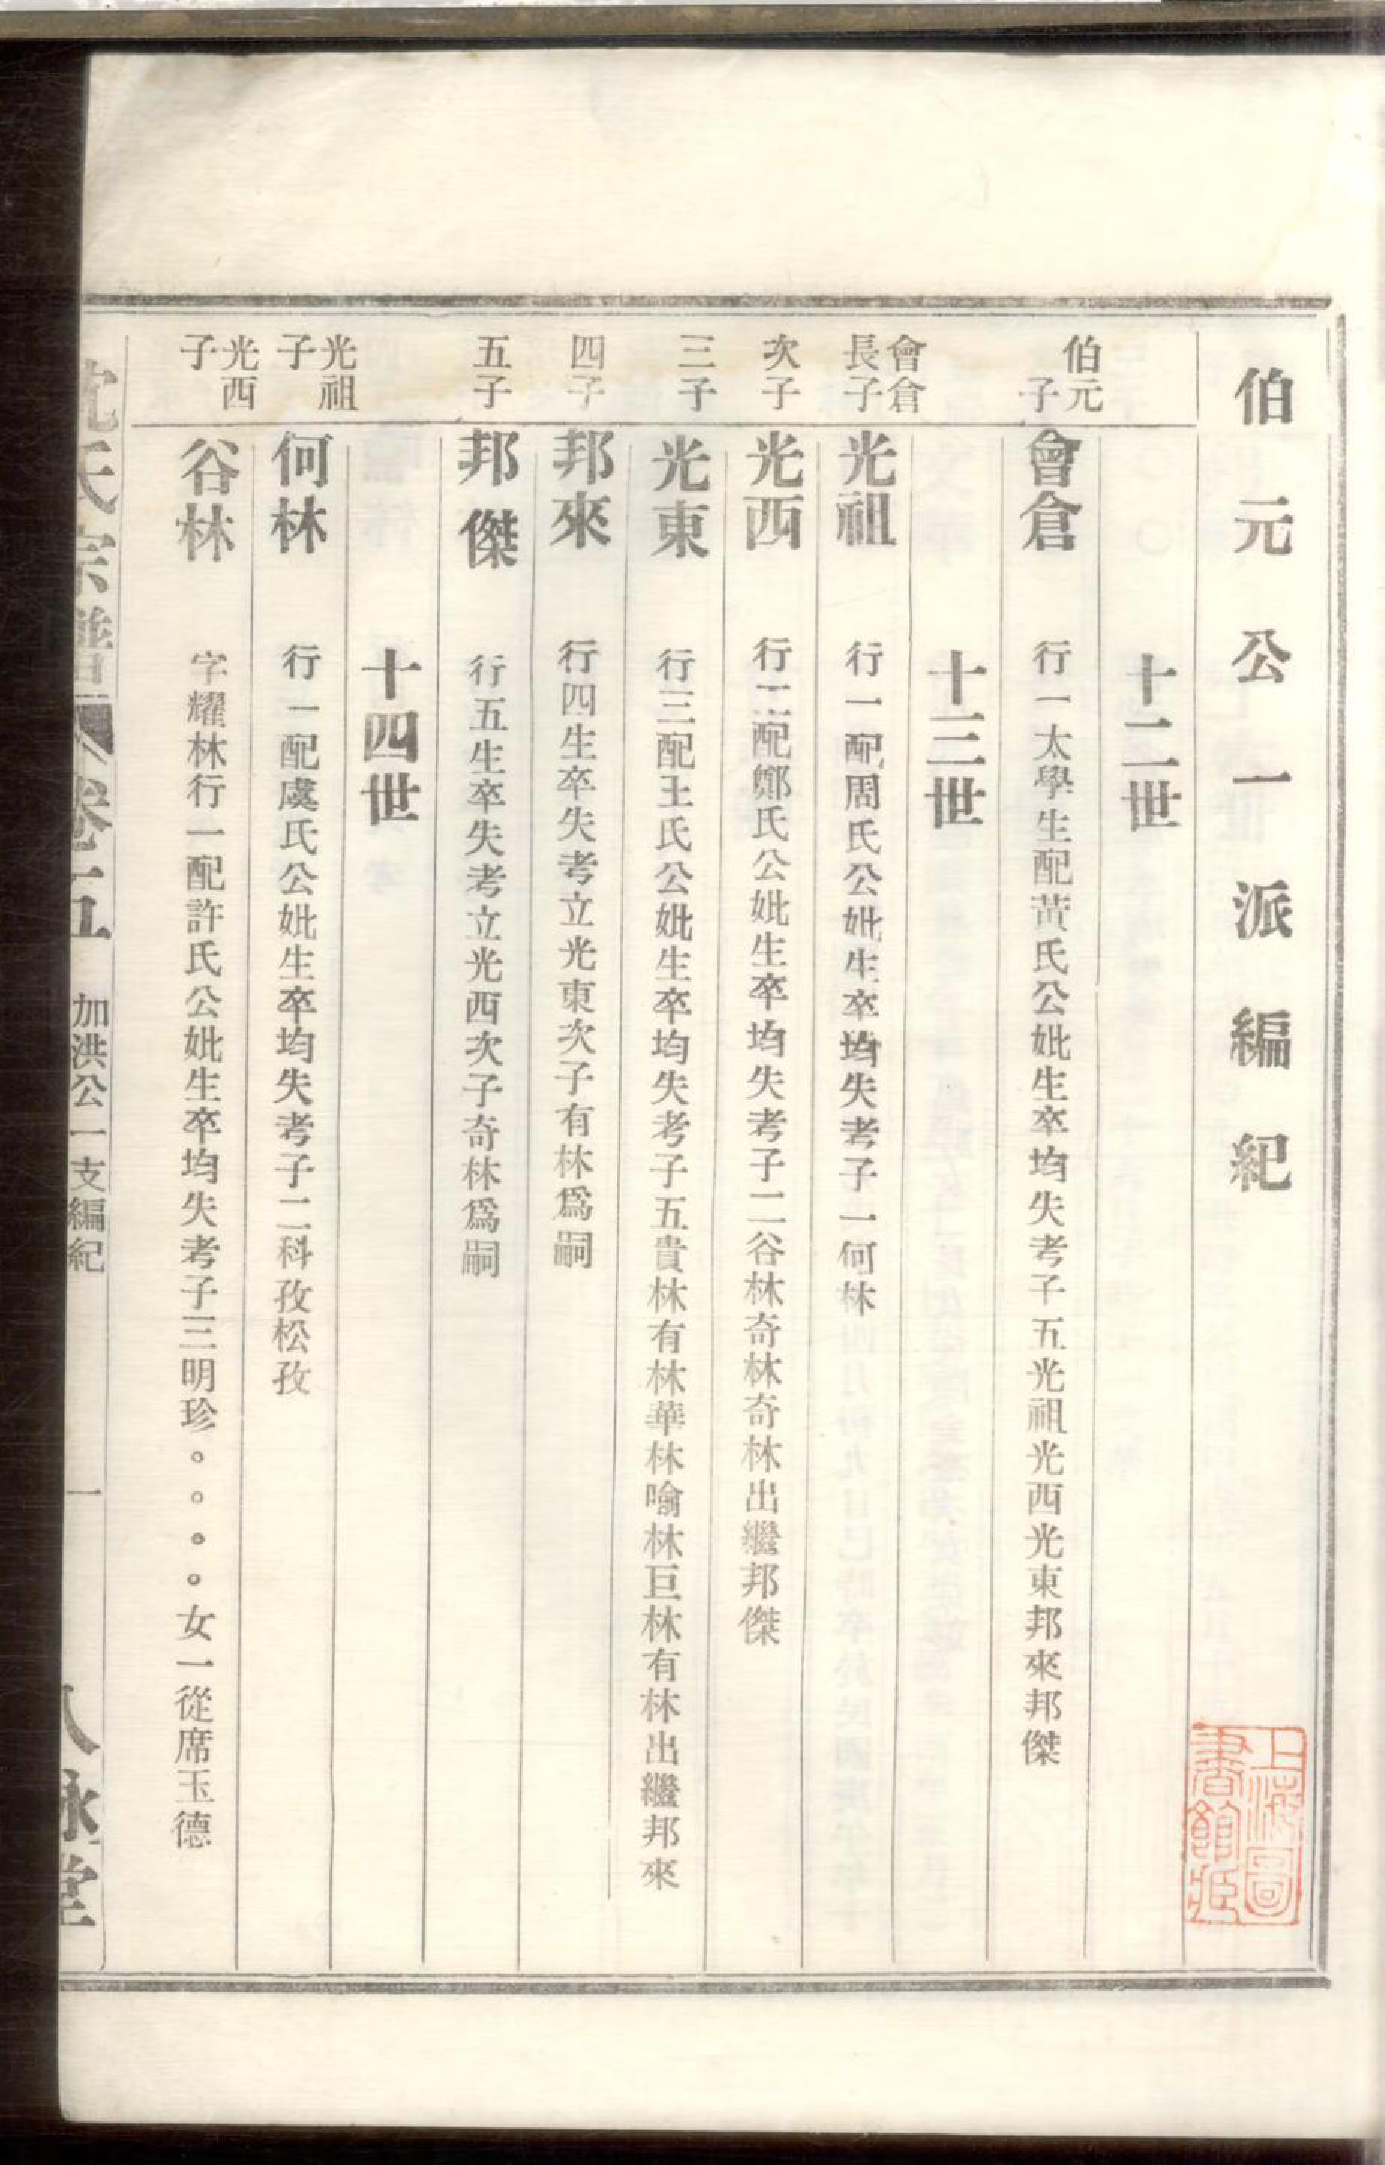 伯元公一派編紀
十二世
伯元
子
會倉
行一太學生配黃氏公妣生卒均失考子五光祖光西光東邦來邦傑
十三世
會倉
長子
光祖
行一配周氏公妣生卒均失考子一何林
次子
光西
行二配鄭氏公妣生卒均失考子二谷林奇林奇林出繼邦傑
三子
光東
行三配王氏公妣生卒均失考子五貴林有林華林喻林巨林有林出繼邦來
四子
邦來
行四生卒失考立光東次子有林爲嗣
五子
邦傑
行五生卒失考立光西次子奇林爲嗣
十四世
光祖
子
何林
行一配虞氏公妣生卒均失考子二科孜松孜
光西
子
谷林
字耀林行一配許氏公妣生卒均失考子三明珍。。。。女一從席玉德
沈氏宗譜
卷五
加洪公一支編紀
一
八詠堂
上海圖
書館藏